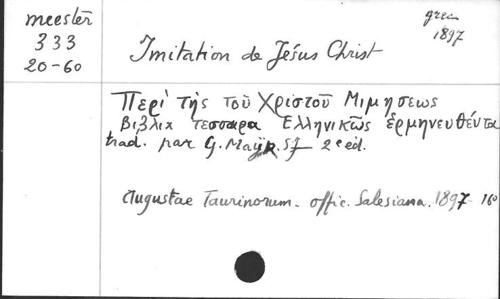 meester
333
20-60
grec
1897
Imitation de Jésus Christ
Περί τής τοῦ Χριστοῦ Μιμησεως
Βιβλια τεσσαρα Ελληνικῶς ἑρμηνευθέντα
trad. par G. Mayr. SJ 2e éd.
Augustae Taurinorum. offic. Salesiana. 1897 16o